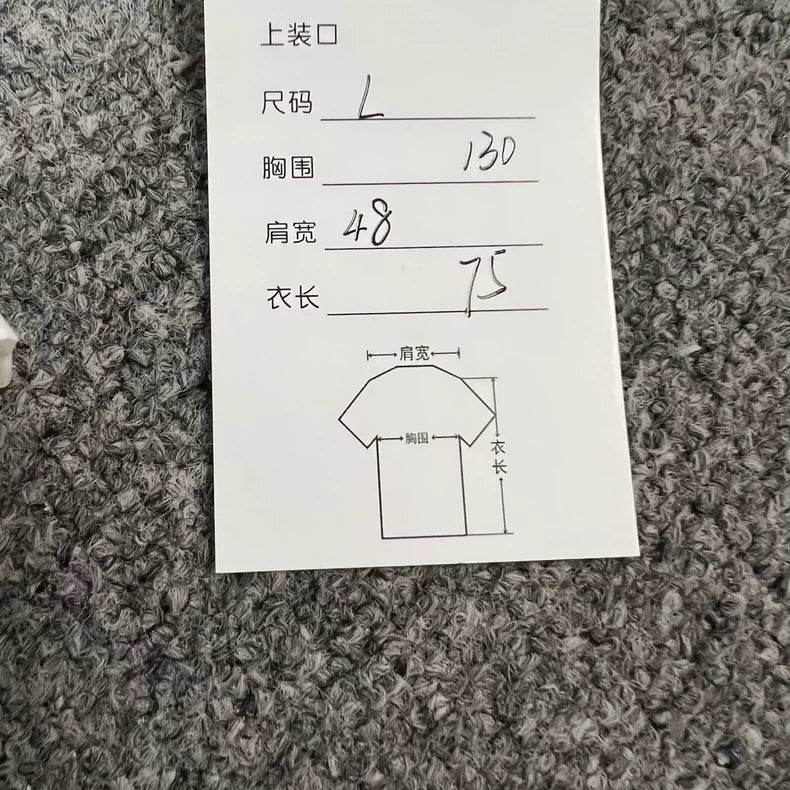 上装口
尺码 L
胸围 130
肩宽 48
衣长 75
肩宽
胸围
衣长